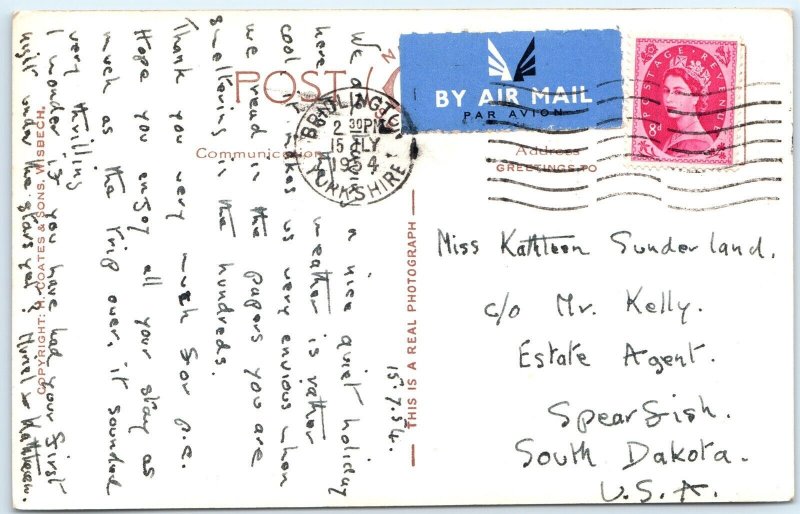 POST
BY AIR MAIL
PAR AVION
POSTAGE REVENUE
8d
BRIDLINGTON
2 30PM
15 JLY
1954
YORKSHIRE
Communication
Address
GREETINGS TO
15.7.54.
We are having a nice quiet holiday
here. The weather is rather
cool & makes us very envious when
we read in the papers you are
sweltering in the hundreds.
Thank you very much for p.c.
Hope you enjoy all your stay as
much as the trip over, it sounded
very thrilling
I wonder if you have had your first
night under the stars yet? Muriel & Kathleen.
COPYRIGHT: H. COATES & SONS, WISBECH.
THIS IS A REAL PHOTOGRAPH
Miss Kathleen Sunderland.
c/o Mr. Kelly.
Estate Agent.
Spearfish.
South Dakota.
U.S.A.